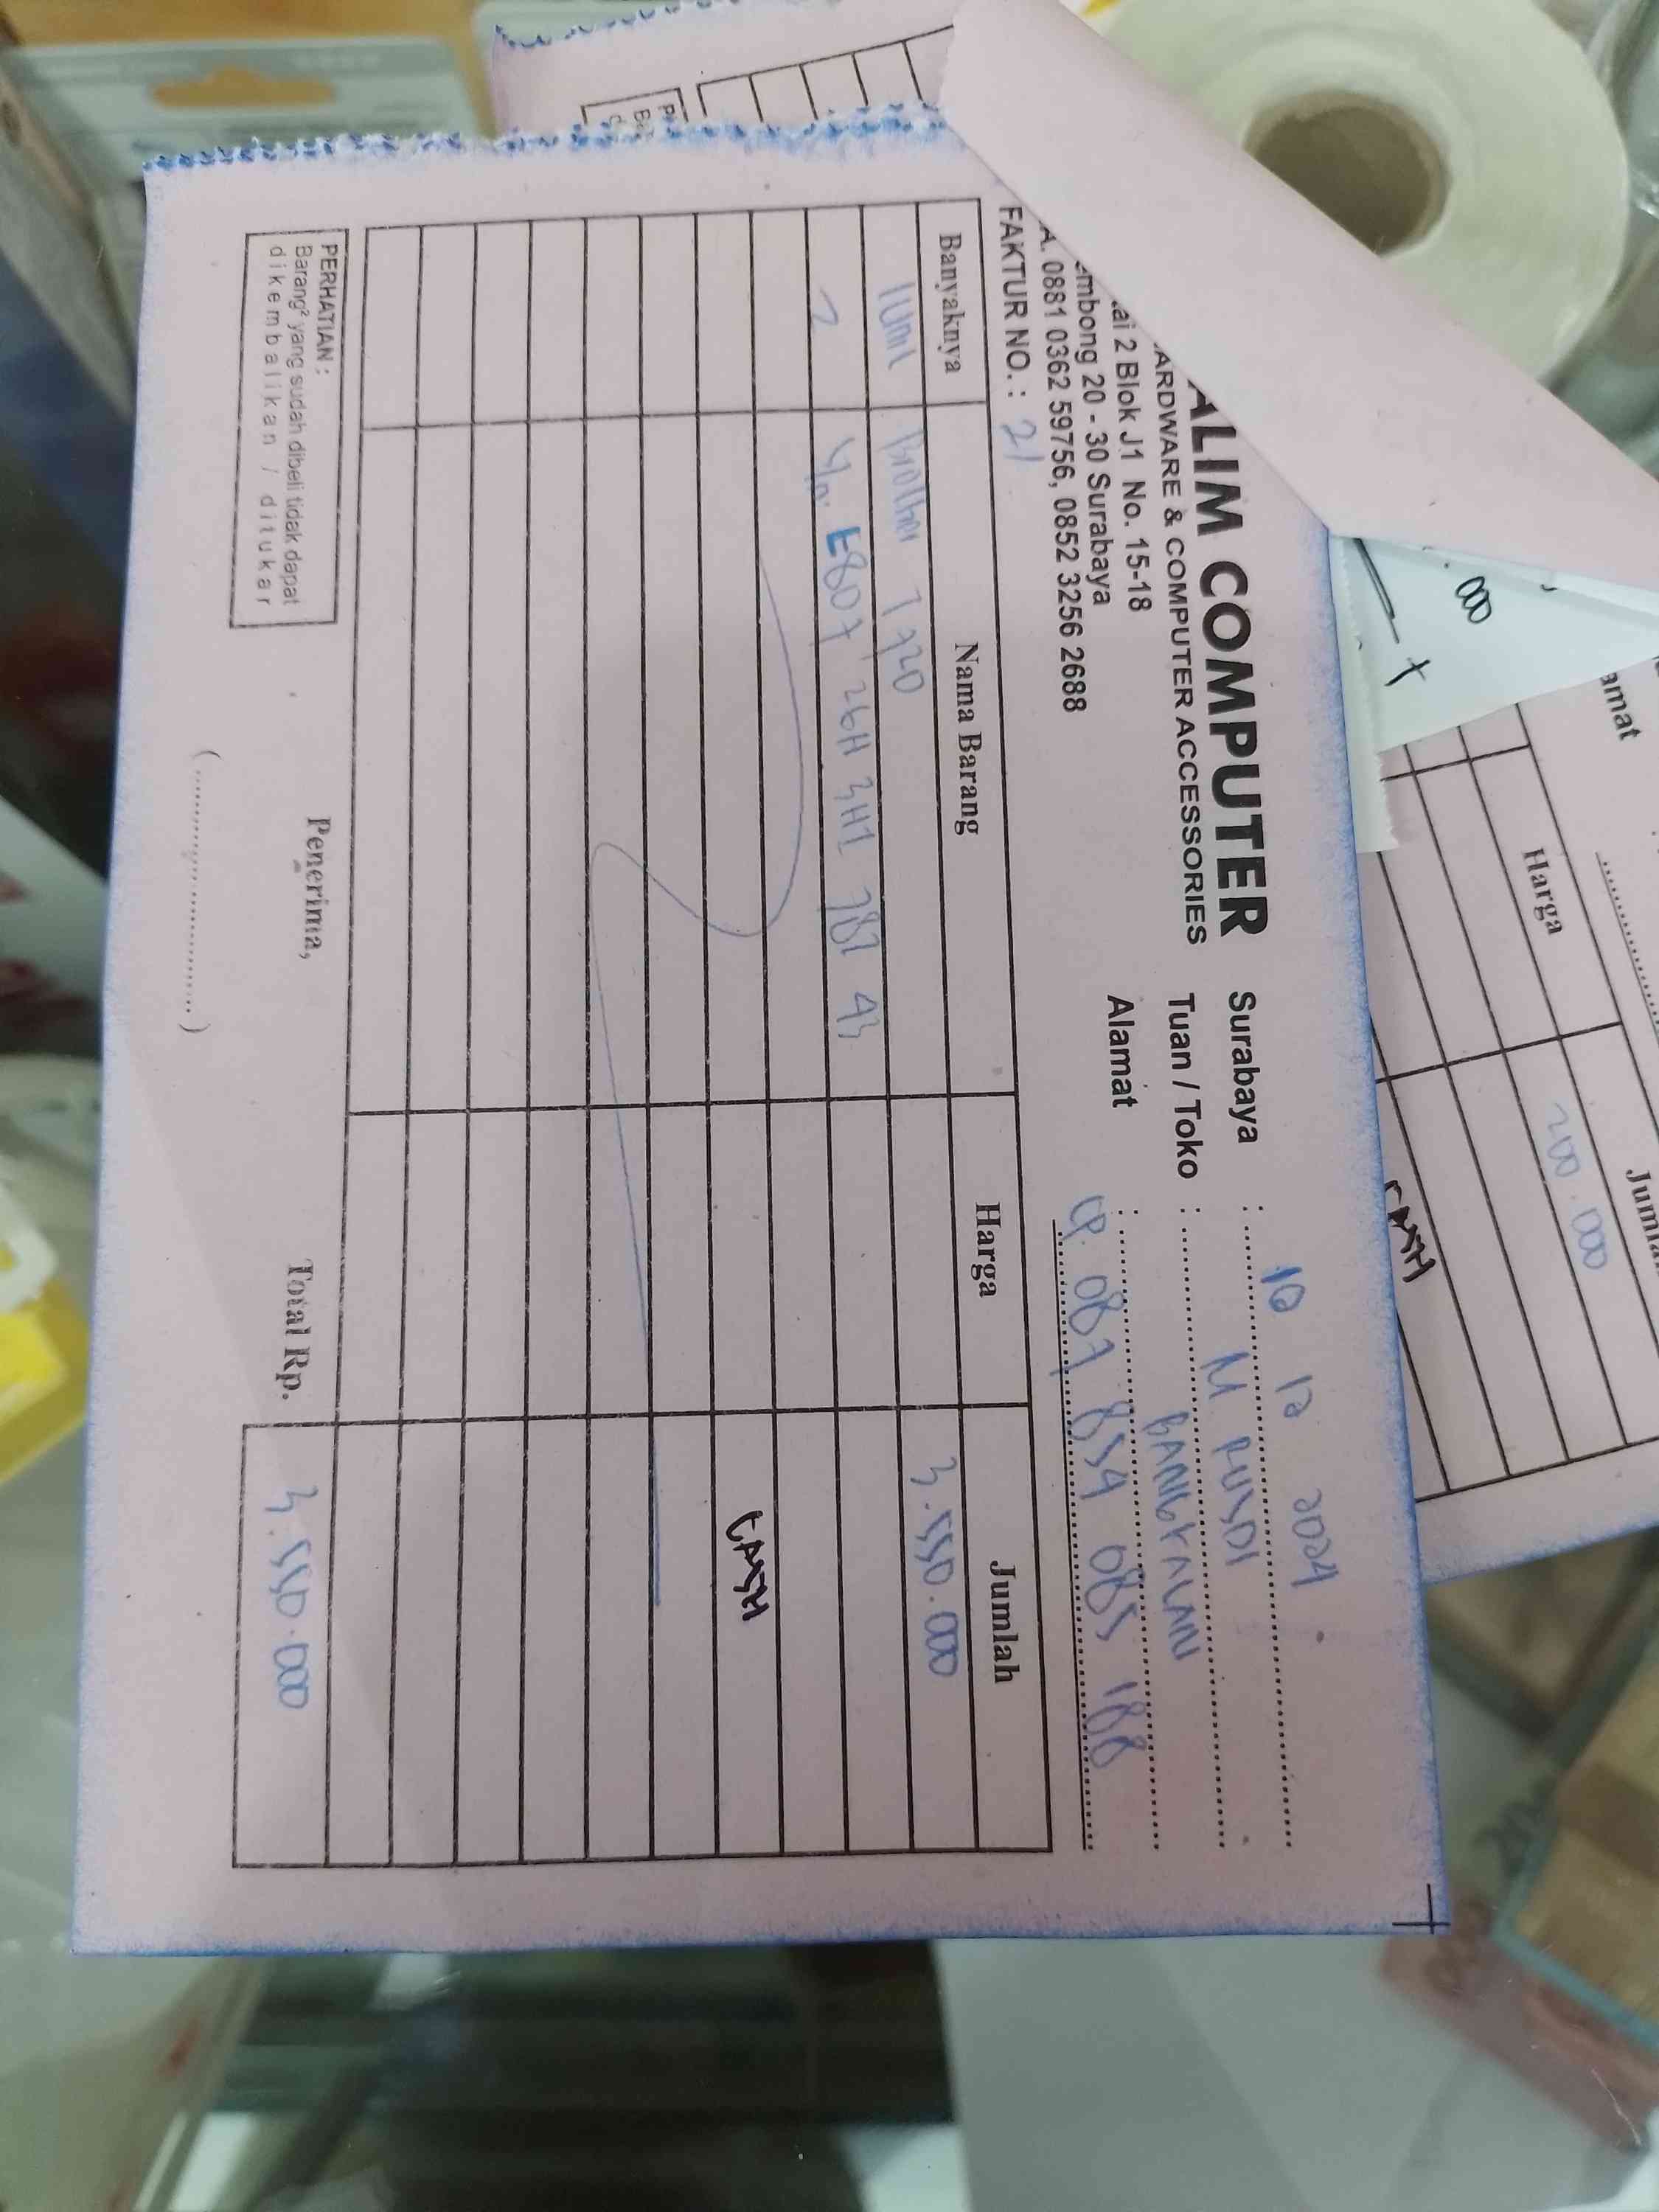 ALIM COMPUTER
ARDWARE & COMPUTER ACCESSORIES
ai 2 Blok J1 No. 15-18
embong 20 - 30 Surabaya
A. 0881 0362 59756, 0852 3256 2688
FAKTUR NO. : 21
Surabaya : 10 12 2024
Tuan / Toko : M RUSDI
Alamat : BANGKALAN
CP. 087 854 085 188
Banyaknya Nama Barang Harga Jumlah
1 Unit Brother T720 3.550.000
E807 26H 3H1 782 43
CASH
Total Rp. 3.550.000
PERHATIAN :
Barang² yang sudah dibeli tidak dapat
dikembalikan / ditukar
Penerima,
(..............................)
amat
Harga
200.000
CASH
.000